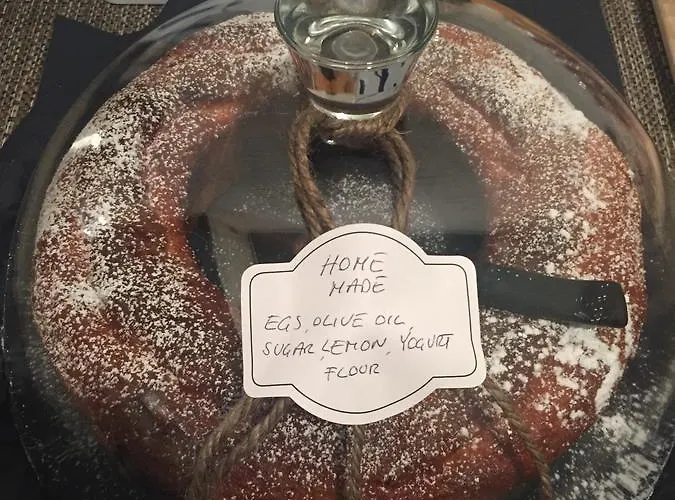 HOME
MADE
EGS, OLIVE OIL,
SUGAR, LEMON, YOGURT
FLOUR